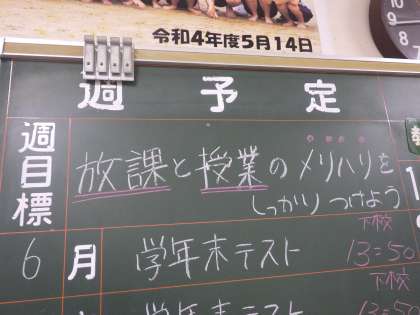 令和4年度5月14日
週予定
週目標
放課と授業のメリハリを
しっかりつけよう
6 月 学年末テスト 下校 13:50
学年末テスト 下校 13:50